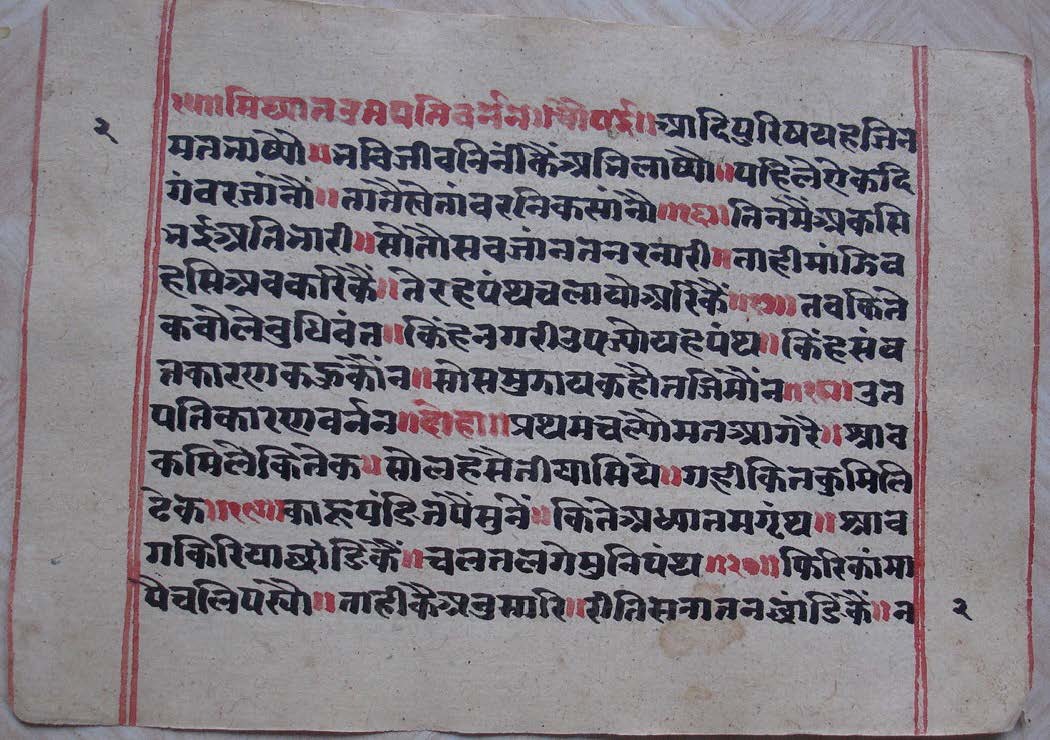 ॥१५॥ मिथ्यातवुतपतिवर्ननं॥चौपई॥आदिपुरिषयहजिन
मतभाष्यौ॥भविजीवनिनींकैंअभिलाष्यौ॥पहिलेऐकेदि
गंवरजांनौं॥तातैसेतांवरनिकसांनौ॥१६॥तिनमैंअकसि
भईअतिभारी॥सोतौसवजांनतनरनारी॥ताहीमांझिव
हसिअवकरिकैं॥तेरहपंथचलायोअरिकैं॥१७॥तवकिते
कवोलेवुधिवंत॥किंहनगरीउपज्योयहपंथ॥किंहसंव
तकारणकहुकौंन॥सोसमुझायकहौतजिमौंन॥१८॥उत
पतिकारणवर्नन॥दोहा॥प्रथमचल्यौमतआगरै॥श्राव
कमिलैकितेक॥सोलहसैतीयासिये॥गहीकितकुमिलि
टेक॥१९॥काहूपंडितपैंसुनें॥कितेअध्यातमगृंथ॥श्राव
गकिरियाछांडिकैं॥चलतलगेमुनिपंथ॥२०॥फिरिकांमा
पैचलिपर्‍यौ॥ताहीकैअनुसारि॥रीतिसनातनछांडिकैं॥न
२
२